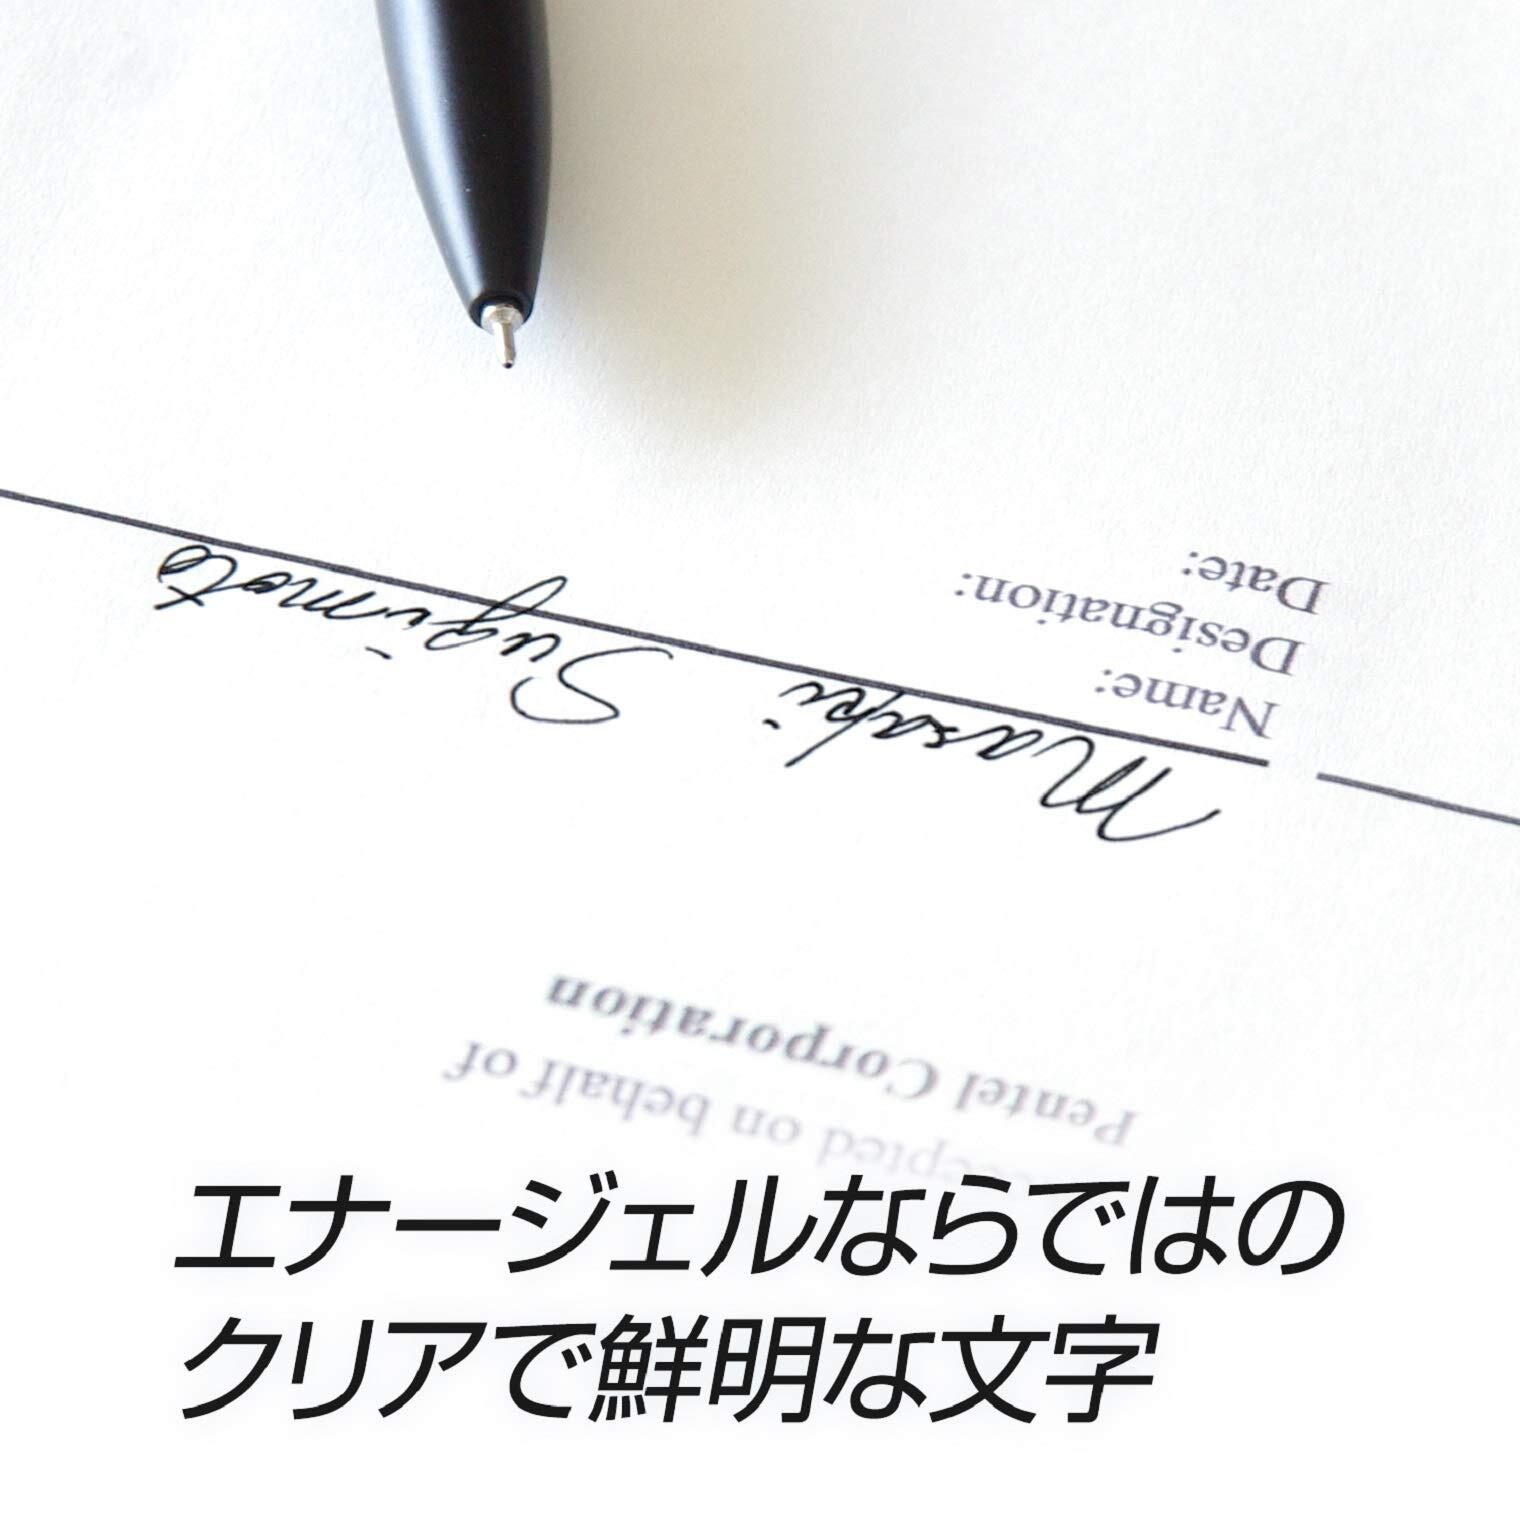 エナージェルならではの
クリアで鮮明な文字
Accepted on behalf of
Pentel Corporation
Masaki Sugimoto
Name:
Designation:
Date: